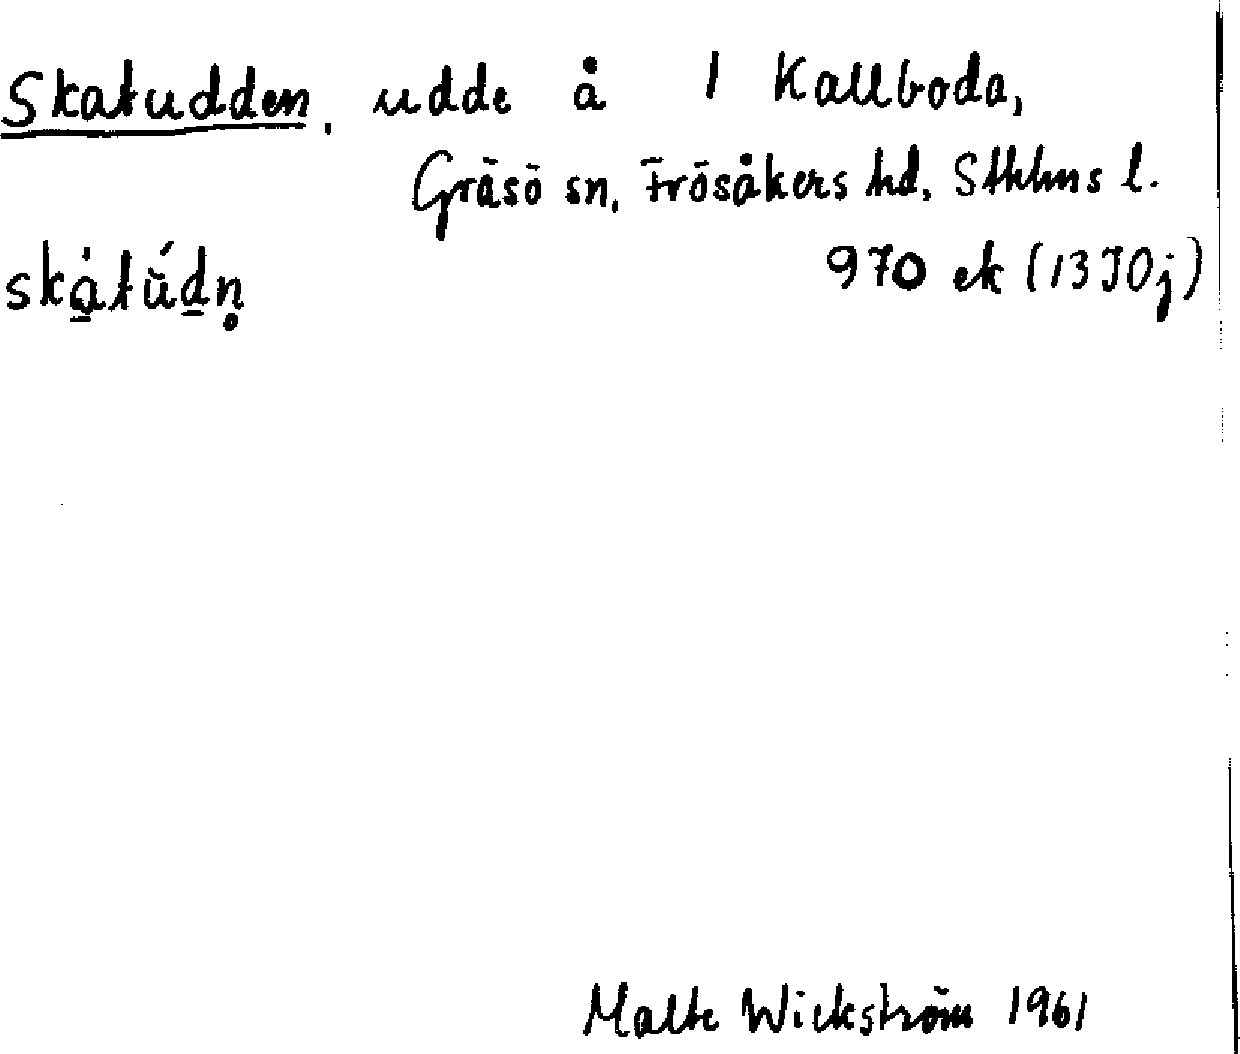 Skatudden, udde å 1 Kallboda,
Gräsö sn, Frösåkers hd, Sthlms l.
skа̣́tŭ́dn̥ 970 ek (13I0j)
Malte Wickström 1961